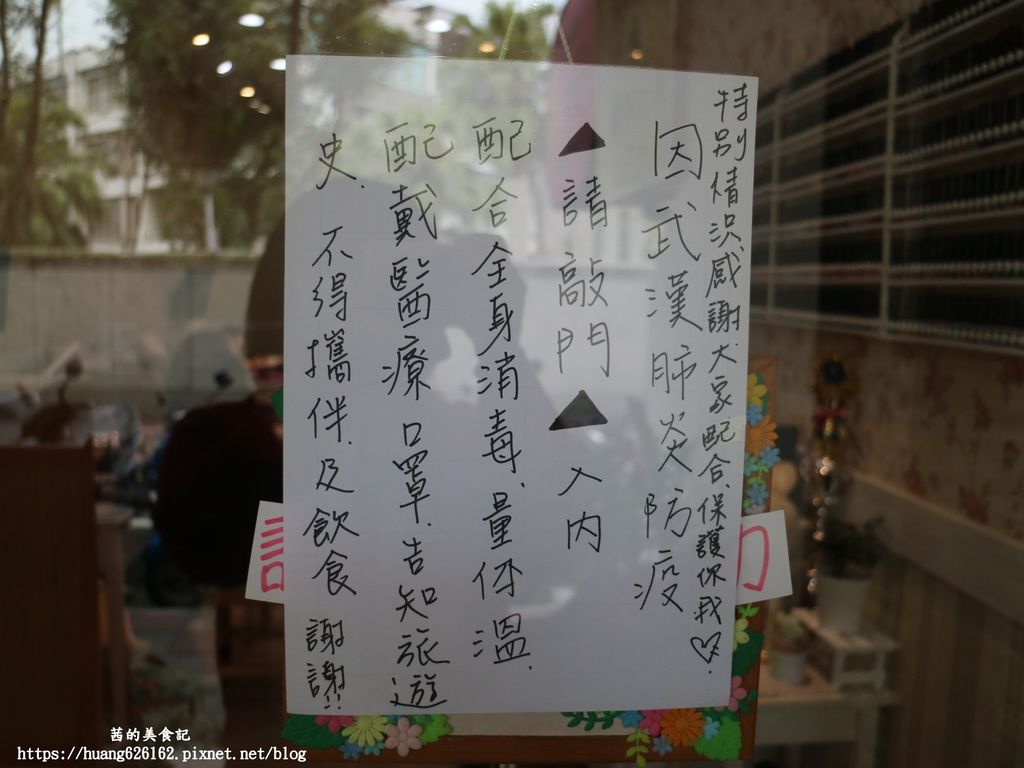 特別情況感謝大家配合.保護你我♡.
因武漢肺炎防疫
▲請敲門▲入內
配合全身消毒.量体溫.
配戴醫療口罩.告知旅遊
史.不得攜伴.及飲食 謝謝!!
茜的美食記
https://huang626162.pixnet.net/blog